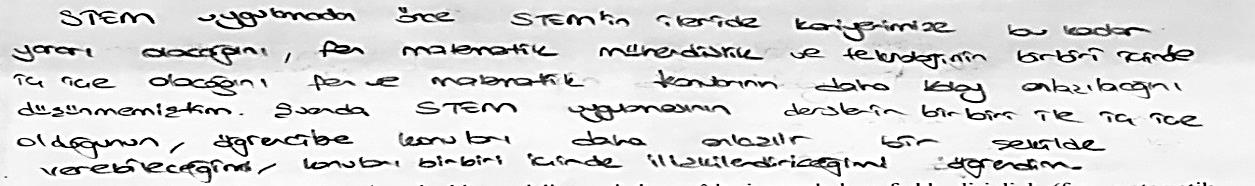 STEM uygulamadan önce STEM'in ileride kariyerimize bu kadar
yararı olacağını, fen matematik mühendislik ve teknolojinin birbiri içinde
iç içe olacağını fen ve matematik konularının daha kolay anlaşılacağını
düşünmemiştim. Şuanda STEM uygulamasının derslerin birbiri ile iç içe
olduğunun, öğrencilere konuları daha anlaşılır bir şekilde
verebileceğimi, konuları birbiri içinde ilişkilendiriceğimi öğrendim.